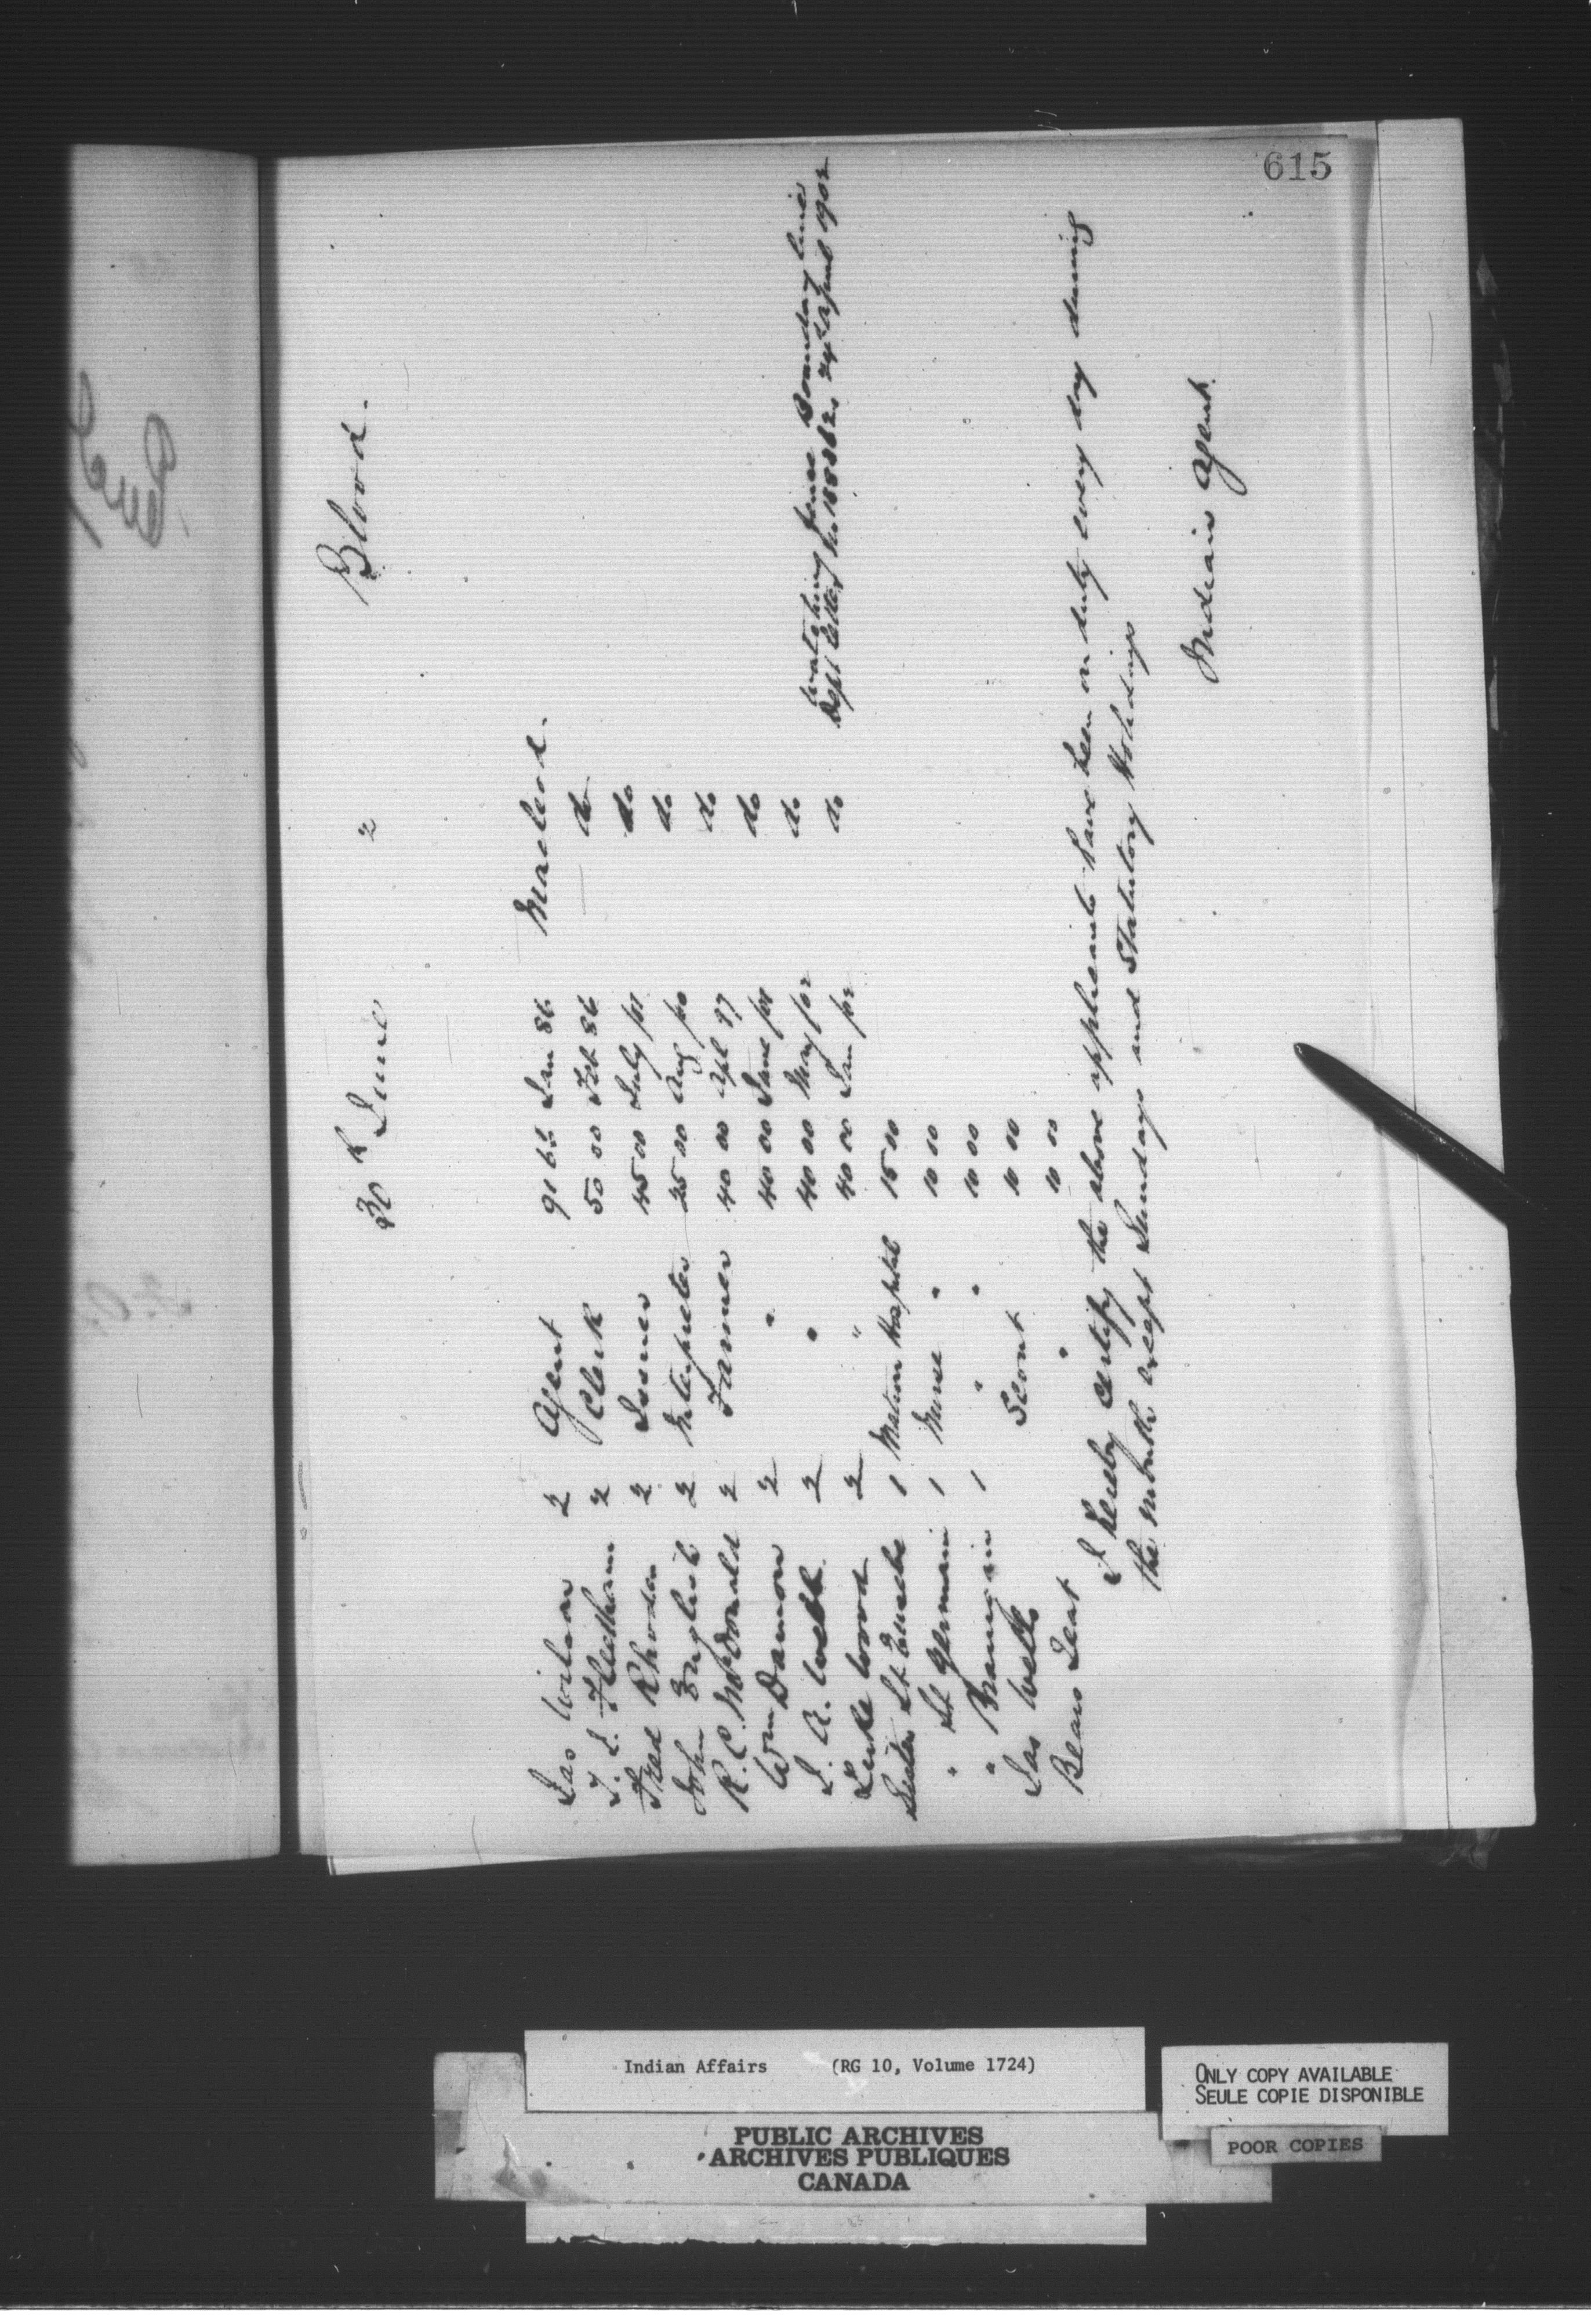 615
30th June 2 Blood.
Jas Wilson 2 Agent 91 66 Jan 86 Macleod.
Clerk 50 00 Feb 86 do
Fred Rhodes 2 Issuer 45 00 July /01 do
John English 2 Interpreter 25 00 Aug /00 do
R. C. McDonald 2 Farmer 40 00 Apl 97 do
Wm Damon 2 " 40 00 June /01 do
J. A. Webb 2 " 40 00 May /02 do
Luke Wood 2 " 40 00 Jan /02 do watching fence Boundary line
Dept letter No 24 April 1902
Sister St Eusebe 1 Matron Hospital 15 00
" St Germain 1 Nurse " 10 00
" 1 " " 10 00
Jas Wells Scout 10 00
Bears " 10 00
I hereby certify the above applicants have been on duty every day during
the month except Sundays and Statutory Holidays
Indian Agent.
Indian Affairs (RG 10, Volume 1724)
PUBLIC ARCHIVES
ARCHIVES PUBLIQUES
CANADA
ONLY COPY AVAILABLE
SEULE COPIE DISPONIBLE
POOR COPIES